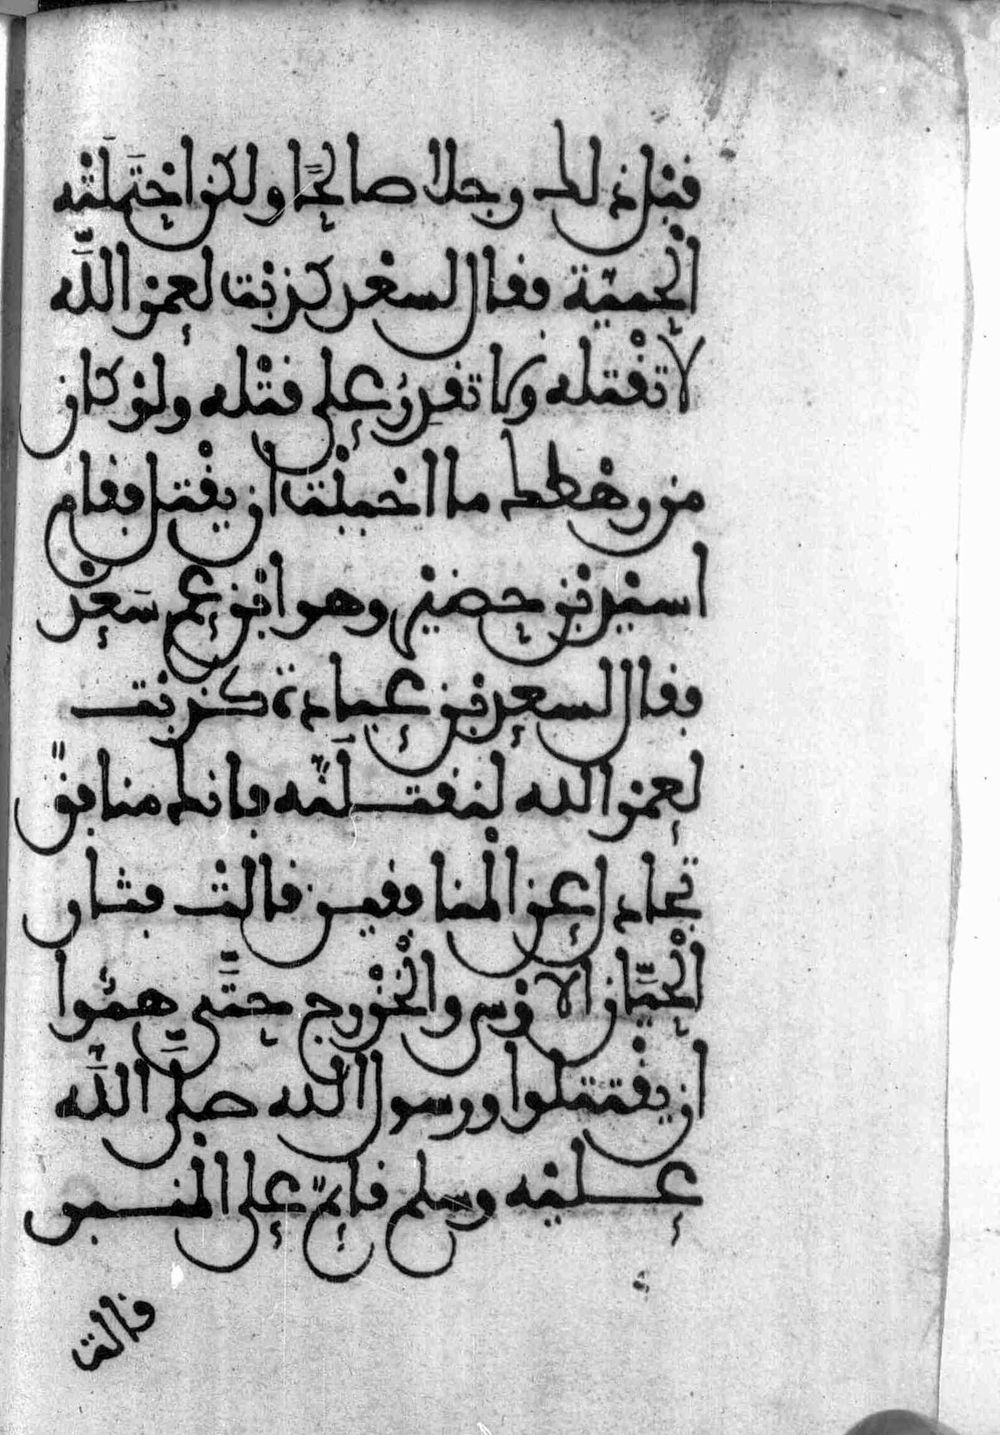 قبل ذلك رجلا صالحًا ولكن احتَملَتْه
الْحميّة فقال لسعد كذبت لعمر اللَّه
لا تقْتله ولا تقدرُ على قتْله ولوْ كان
من رهْطك ما احببْت ان يقْتل فقام
اسيْد بْن حضيْر وهو ابْن عم سَعد
فقال لسعد بْن عبادة كذبت
لعمر الله لنقتلَنّه فانك منافقٌ
تجادل عن الْمنافقين قالتْ فثار
الْحيّان الاوْس والْخزْرج حتَّى همُّوا
ان يقْتتلوا ورسول الله صلَّى اللَّه
عليْه وسلم قائمٌ على الْمنبر
قالت